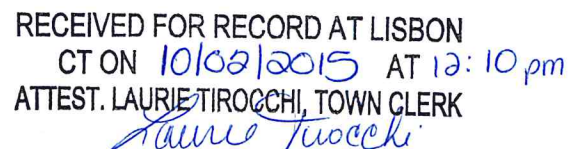 RECEIVED FOR RECORD AT LISBON
CT ON 10/02/2015 AT 12:10 pm
ATTEST. LAURIE TIROCCHI, TOWN CLERK
Laurie Tirocchi